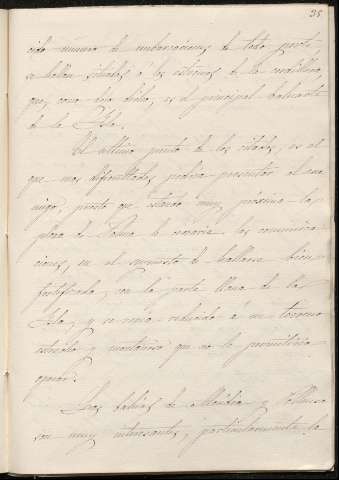 35
cido número de embarcaciones de todo porte,
se hallan situados á los estremos de la cordillera,
que, como dejo dicho, es el principal baluarte
de la Isla.
El último punto de los citados, es el
que mas dificultades podria presentar al ene-
migo, puesto que estando muy próxima la
plaza de Palma le cortaria las comunica-
ciones, en el supuesto de hallarse bien
fortificada, con la parte llana de la
Isla, y se veria reducido á un terreno
estrecho y montañoso que no le permitiria
operar.
Las bahias de Alcudia y Pollensa
son muy interesantes, particularmente la